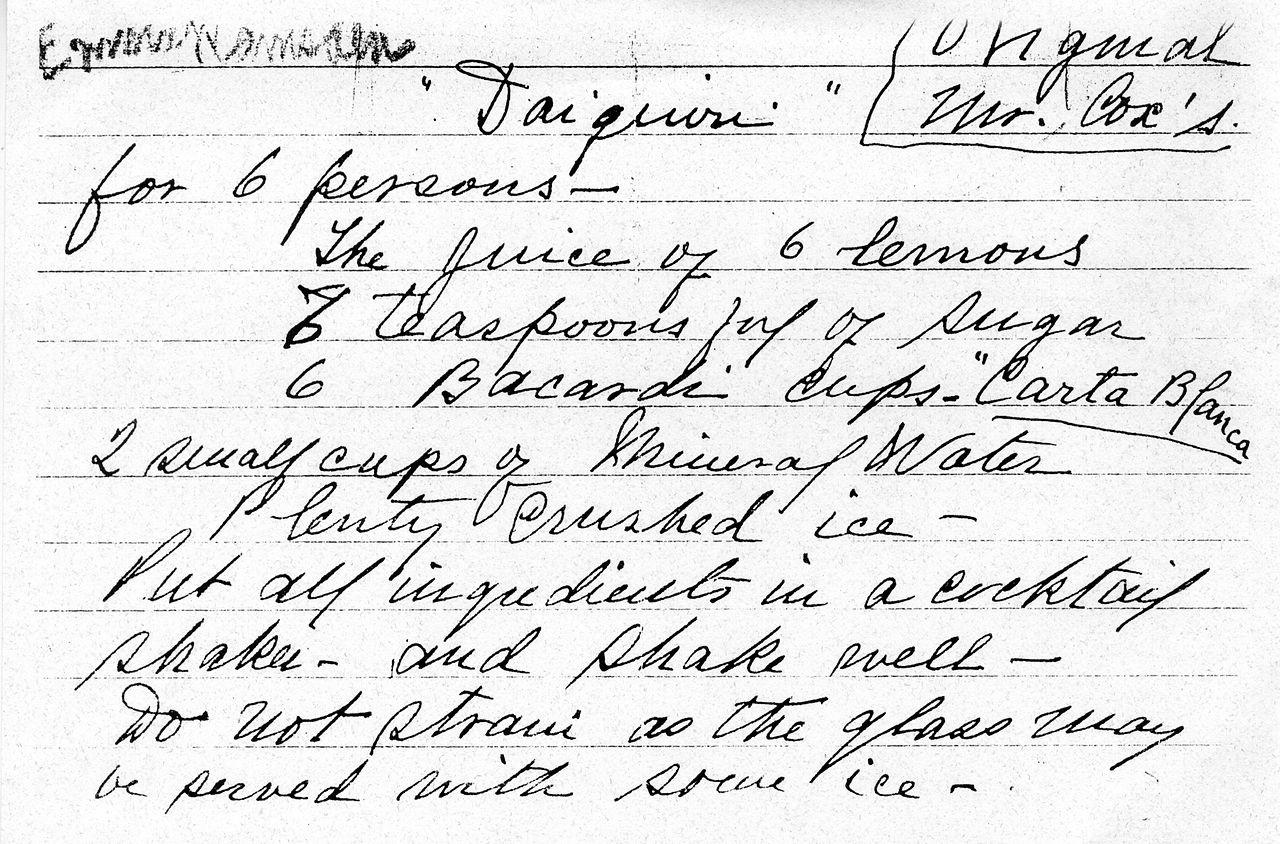 Original
"Daiquiri" Mr. Cox's.
for 6 persons—
The juice of 6 lemons
6 teaspoons ful of sugar
6 Bacardi cups-"Carta Blanca
2 small cups of Mineral Water
Plenty crushed ice —
Put all ingredients in a cocktail
shaker - and shake well —
Do not strain as the glass may
be served with some ice -